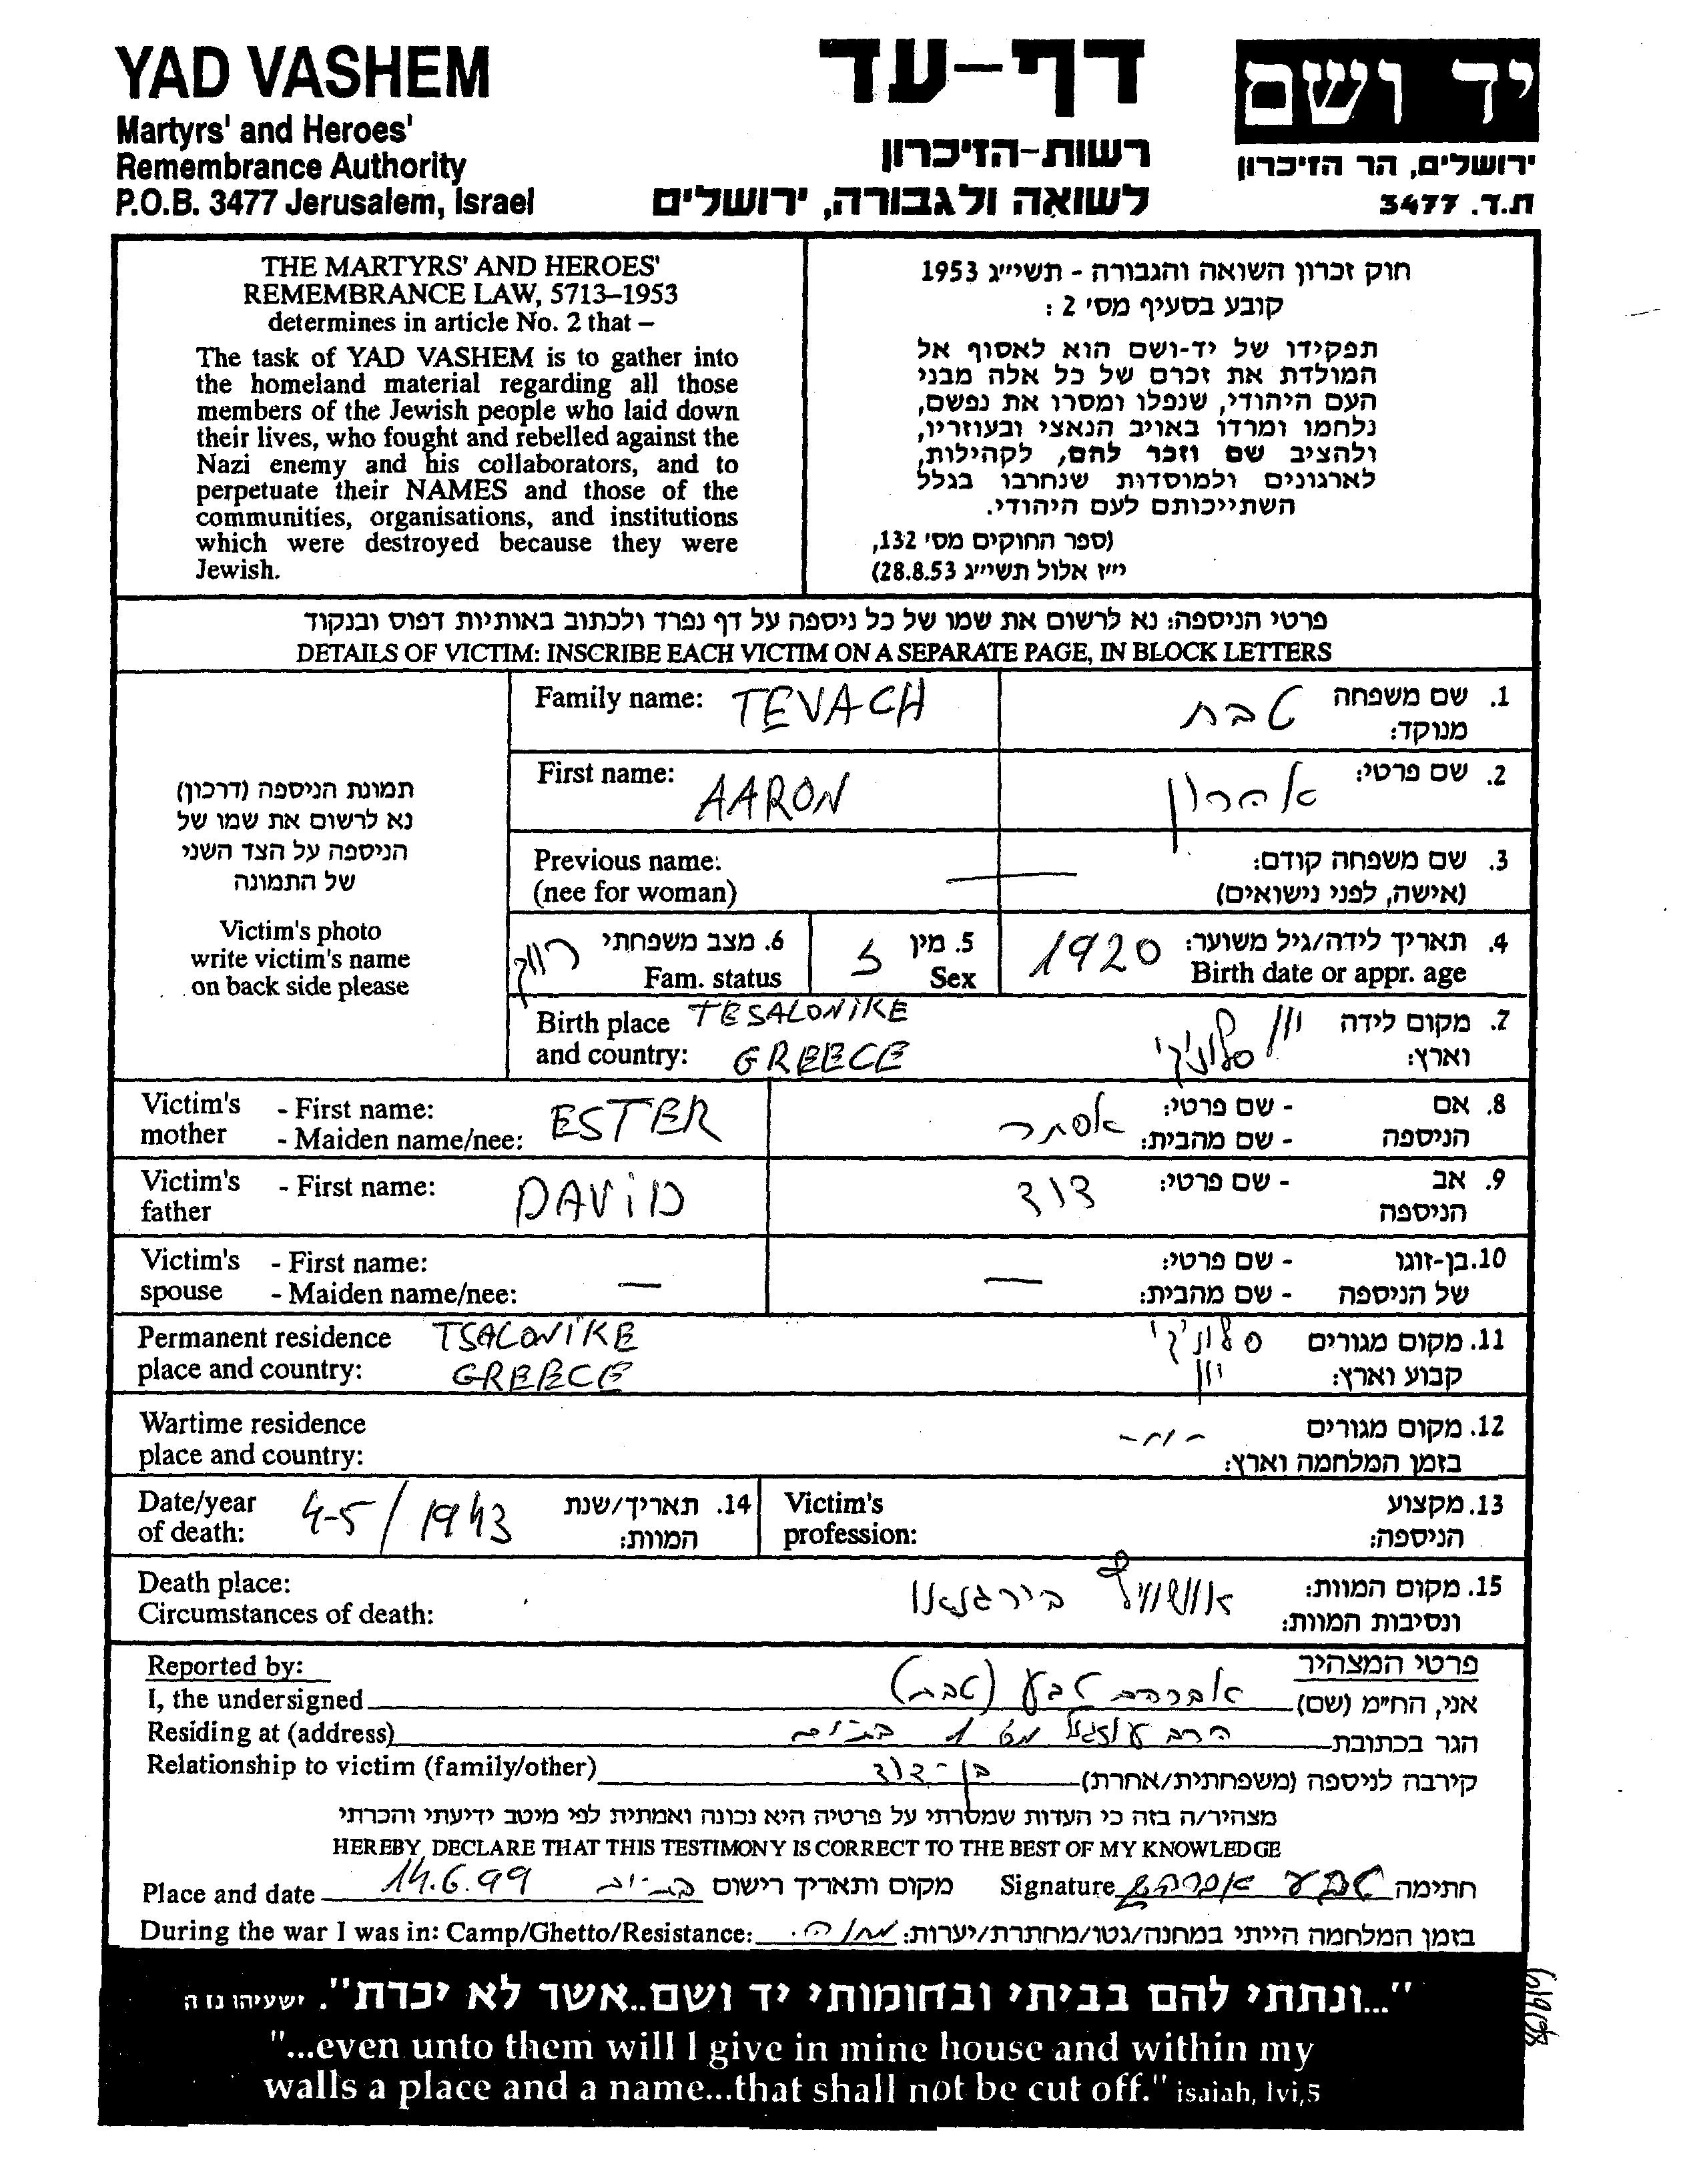 YAD VASHEM
Martyrs' and Heroes'
Remembrance Authority
P.O.B. 3477 Jerusalem, Israel
דף-עד
רשות-הזיכרון
לשואה ולגבורה, ירושלים
יד ושם
ירושלים, הר הזיכרון
ת.ד. 3477
THE MARTYRS' AND HEROES'
REMEMBRANCE LAW, 5713–1953
determines in article No. 2 that –
The task of YAD VASHEM is to gather into
the homeland material regarding all those
members of the Jewish people who laid down
their lives, who fought and rebelled against the
Nazi enemy and his collaborators, and to
perpetuate their NAMES and those of the
communities, organisations, and institutions
which were destroyed because they were
Jewish.
חוק זכרון השואה והגבורה - תשי״ג 1953
קובע בסעיף מס׳ 2 :
תפקידו של יד-ושם הוא לאסוף אל
המולדת את זכרם של כל אלה מבני
העם היהודי, שנפלו ומסרו את נפשם,
נלחמו ומרדו באויב הנאצי ובעוזריו,
ולהציב שם וזכר להם, לקהילות,
לארגונים ולמוסדות שנחרבו בגלל
השתייכותם לעם היהודי.
(ספר החוקים מס׳ 132,
י״ז אלול תשי״ג 28.8.53)
פרטי הניספה: נא לרשום את שמו של כל ניספה על דף נפרד ולכתוב באותיות דפוס ובנקוד
DETAILS OF VICTIM: INSCRIBE EACH VICTIM ON A SEPARATE PAGE, IN BLOCK LETTERS
תמונת הניספה (דרכון)
נא לרשום את שמו של
הניספה על הצד השני
של התמונה
Victim's photo
write victim's name
on back side please
Family name: TEVACH
1. שם משפחה מנוקד: טבח
First name: AARON
2. שם פרטי: אהרון
Previous name:
(nee for woman)
—
3. שם משפחה קודם:
(אישה, לפני נישואים)
4. תאריך לידה/גיל משוער: 1920
Birth date or appr. age
5. מין ז
Sex
6. מצב משפחתי רווק
Fam. status
Birth place TESALONIKE
and country: GREECE
7. מקום לידה יוון
וארץ: סלוניקי
Victim's - First name: ESTER
mother - Maiden name/nee:
8. אם - שם פרטי: אסתר
הניספה - שם מהבית:
Victim's - First name: DAVID
father
9. אב - שם פרטי: דוד
הניספה
Victim's - First name:
spouse - Maiden name/nee: —
10. בן-זוגו - שם פרטי: —
של הניספה - שם מהבית:
Permanent residence TSALONIKE
place and country: GREECE
11. מקום מגורים סלוניקי
קבוע וארץ: יוון
Wartime residence
place and country:
12. מקום מגורים
בזמן המלחמה וארץ:
Date/year
of death: 4-5/1943
14. תאריך/שנת
המוות:
Victim's
profession:
13. מקצוע
הניספה:
Death place:
Circumstances of death:
15. מקום המוות: אושוויץ בירגנאו
ונסיבות המוות:
Reported by:
פרטי המצהיר
I, the undersigned
אני, הח״מ (שם) אברהם טבע (טבח)
Residing at (address)
הגר בכתובת הרב עוזיאל 1 בת-ים
Relationship to victim (family/other)
קירבה לניספה (משפחתית/אחרת) בן-דוד
מצהיר/ה בזה כי העדות שמסרתי על פרטיה היא נכונה ואמתית לפי מיטב ידיעתי והכרתי
HEREBY DECLARE THAT THIS TESTIMONY IS CORRECT TO THE BEST OF MY KNOWLEDGE
Place and date 14.6.99 בת-ים מקום ותאריך רישום
Signature טבע אברהם חתימה
During the war I was in: Camp/Ghetto/Resistance:
בזמן המלחמה הייתי במחנה/גטו/מחתרת/יערות: מחנה.
"...ונתתי להם בביתי ובחומותי יד ושם..אשר לא יכרת". ישעיהו נו ה
"...even unto them will I give in mine house and within my
walls a place and a name...that shall not be cut off." isaiah, lvi,5